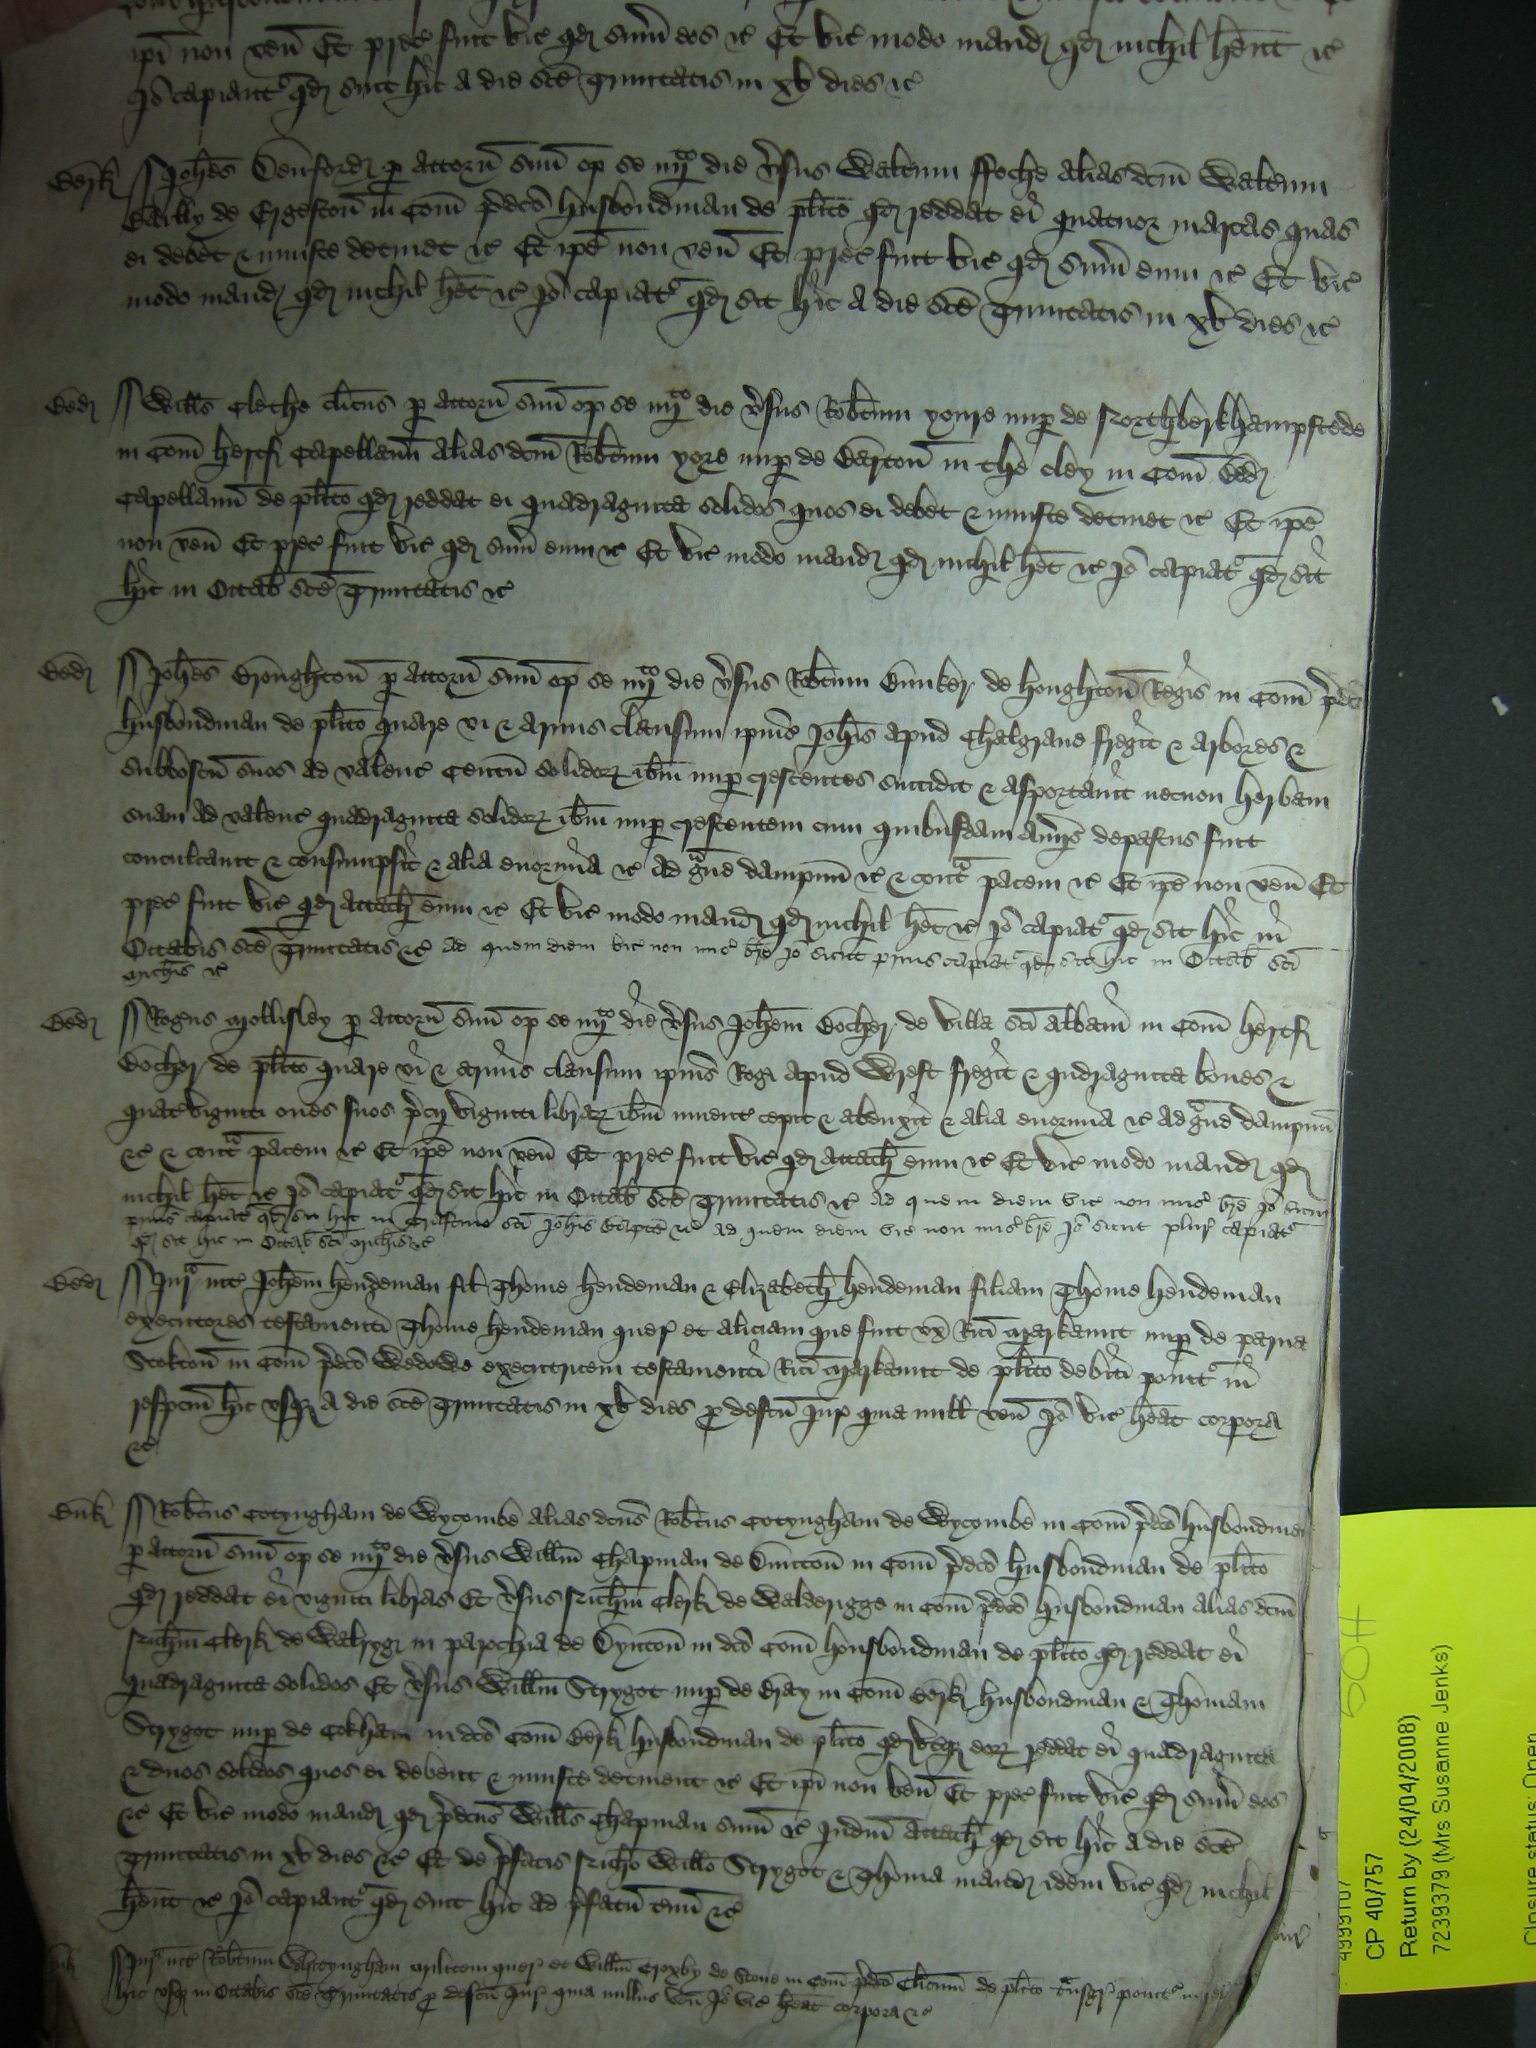 ipi non ven Et prec fuit vic qd sum eos &c Et vic modo mand qd nichil hent &c
Io capiant qd sint hic a die sce Trinitatis in xv dies &c
Berk Johes Denford p attorn suum op se iiij to die vsus Walterum ffoche alias dcm Walterum
Bailly de Ergeston in Com pdco husbondman de plito qd reddat ei quatuor marcas quas
ei debet & iniuste detinet &c Et ipe non ven Et prec fuit vic qd sum eum &c Et vic
modo mand qd nichil het &c Io capiat qd sit hic a die sce Trinitatis in xv dies &c
Bed Wills Clethe clicus p attorn suum op se iiij to die vsus Robtum yonre nup de Northberkhampstede
in Com Hertf Capellanu alias dcm Robtum yore nup de Barton in the cley in Com Bed
Capellanu de plito qd reddat ei quadraginta solidos quos ei debet & iniuste detinet &c Et ipe
non ven Et prec fuit vic qd sum eum &c Et vic modo mand qd nichil het &c Io capiat qd sit
hic in Octab sce Trinitatis &c
Bed Johes Broughton p attorn suum op se iiij to die vsus Robtum Bunker de Houghton Regis in Com pdco
husbondman de plito quare vi & armis clausum ipius Johis apud Chalgrave fregit & arbores &
subboscum suos ad valenc Centu solidor ibm nup crescentes succidit & asportavit necnon herbam
suam ad valenc quadraginta solidor ibm nup crescentem cum quibusdam aueriis depastus fuit
conculcavit & consumpsit & alia enormia &c ad gue dampnu &c & cont pacem &c Et ipe non ven Et
prec fuit vic qd attach eum &c Et vic modo mand qd nichil het &c Io capiat qd sit hic in
Octabis sce Trinitatis &c ad quem diem vic non mis bre Io sicut prius capiat qd sit hic in Octab sci
Michis &c
Bed Rogus Mollisley p attorn suum op se iiij to die vsus Johem Bocher de villa sci Albani in Com Hertf
Bocher de plito quare vi & armis clausum ipius Rogi apud Wrest fregit & qudraginta boues &
quat viginti oues suos pcij viginti librar ibm inuent cepit & abduxit & alia enormia &c ad gue dampnu
&c & cont pacem &c Et ipe non ven Et prec fuit vic qd attach eum &c Et vic modo mand qd
nichil het &c Io capiat qd sit hic in Octab sce Trinitatis &c ad quem diem vic non mis bre Io sicut
prius capiat qd sit hic in Crastino sci Johis Baptie &c ad quem diem vic non mis bre Io sicut plur capiat
qd sit hic in Octab sci Michis &c
Bed Jur int Johem Hendeman fil Thome Hendeman & Elizabeth Hendeman filiam Thome Hendeman
executores testamenti Thome Hendeman quer et Aliciam que fuit ux Rici Markaunt nup de parua
Stokton in Com pdco Wedowe executricem testamenti Rici Markaunt de plito debiti ponit in
respcm hic usq a die sce Trinitatis in xv dies p defcu Jur quia null ven Io vic heat corpora
&c
Buk Robtus Cotyngham de Wycombe alias dcus Robtus Cotyngham de Wycombe in Com pdco husbondman
p attorn suum op se iiij to die vsus Willm Chapman de Dunton in Com pdco husbondman de plito
qd reddat ei viginti libras Et vsus Nichm Clerk de Walderigge in Com pdco husbondman alias dcm
Nichm Clerk de Walrygg in parochia de Dynton in dco Com housbondman de plito qd reddat ei
quadraginta solidos Et vsus Willm Strygot nup de Bray in Com Berk husbondman & Thomam
Strygot nup de Cokham in dco Com Berk husbondman de plito qd uterq eor reddat ei quadraginta
& duos solidos quos ei debent & iniuste detinent &c Et ipi non ven Et prec fuit vic qd sum eos
&c Et vic modo mand qd pdcus Wills Chapman sum &c Judm Attach qd sit hic a die sce
Trinitatis in xv dies &c Et de pfatis Nicho Willo Strygot & Thoma mand idem vic qd nichil
hent &c Io capiant qd sint hic ad pfatu tmu &c
Jur int Robtum Whityngham militem quer et Willm Croxby de Stone in Com pdco Clicum de plito tnsgr ponit in
hic usq in Octabis sce Trinitatis p defcu Jur quia nullus ven Io vic heat corpora &c
4999107
CP 40/757
Return by (24/04/2008)
7239379 (Mrs Susanne Jenks)
Closure status: Open